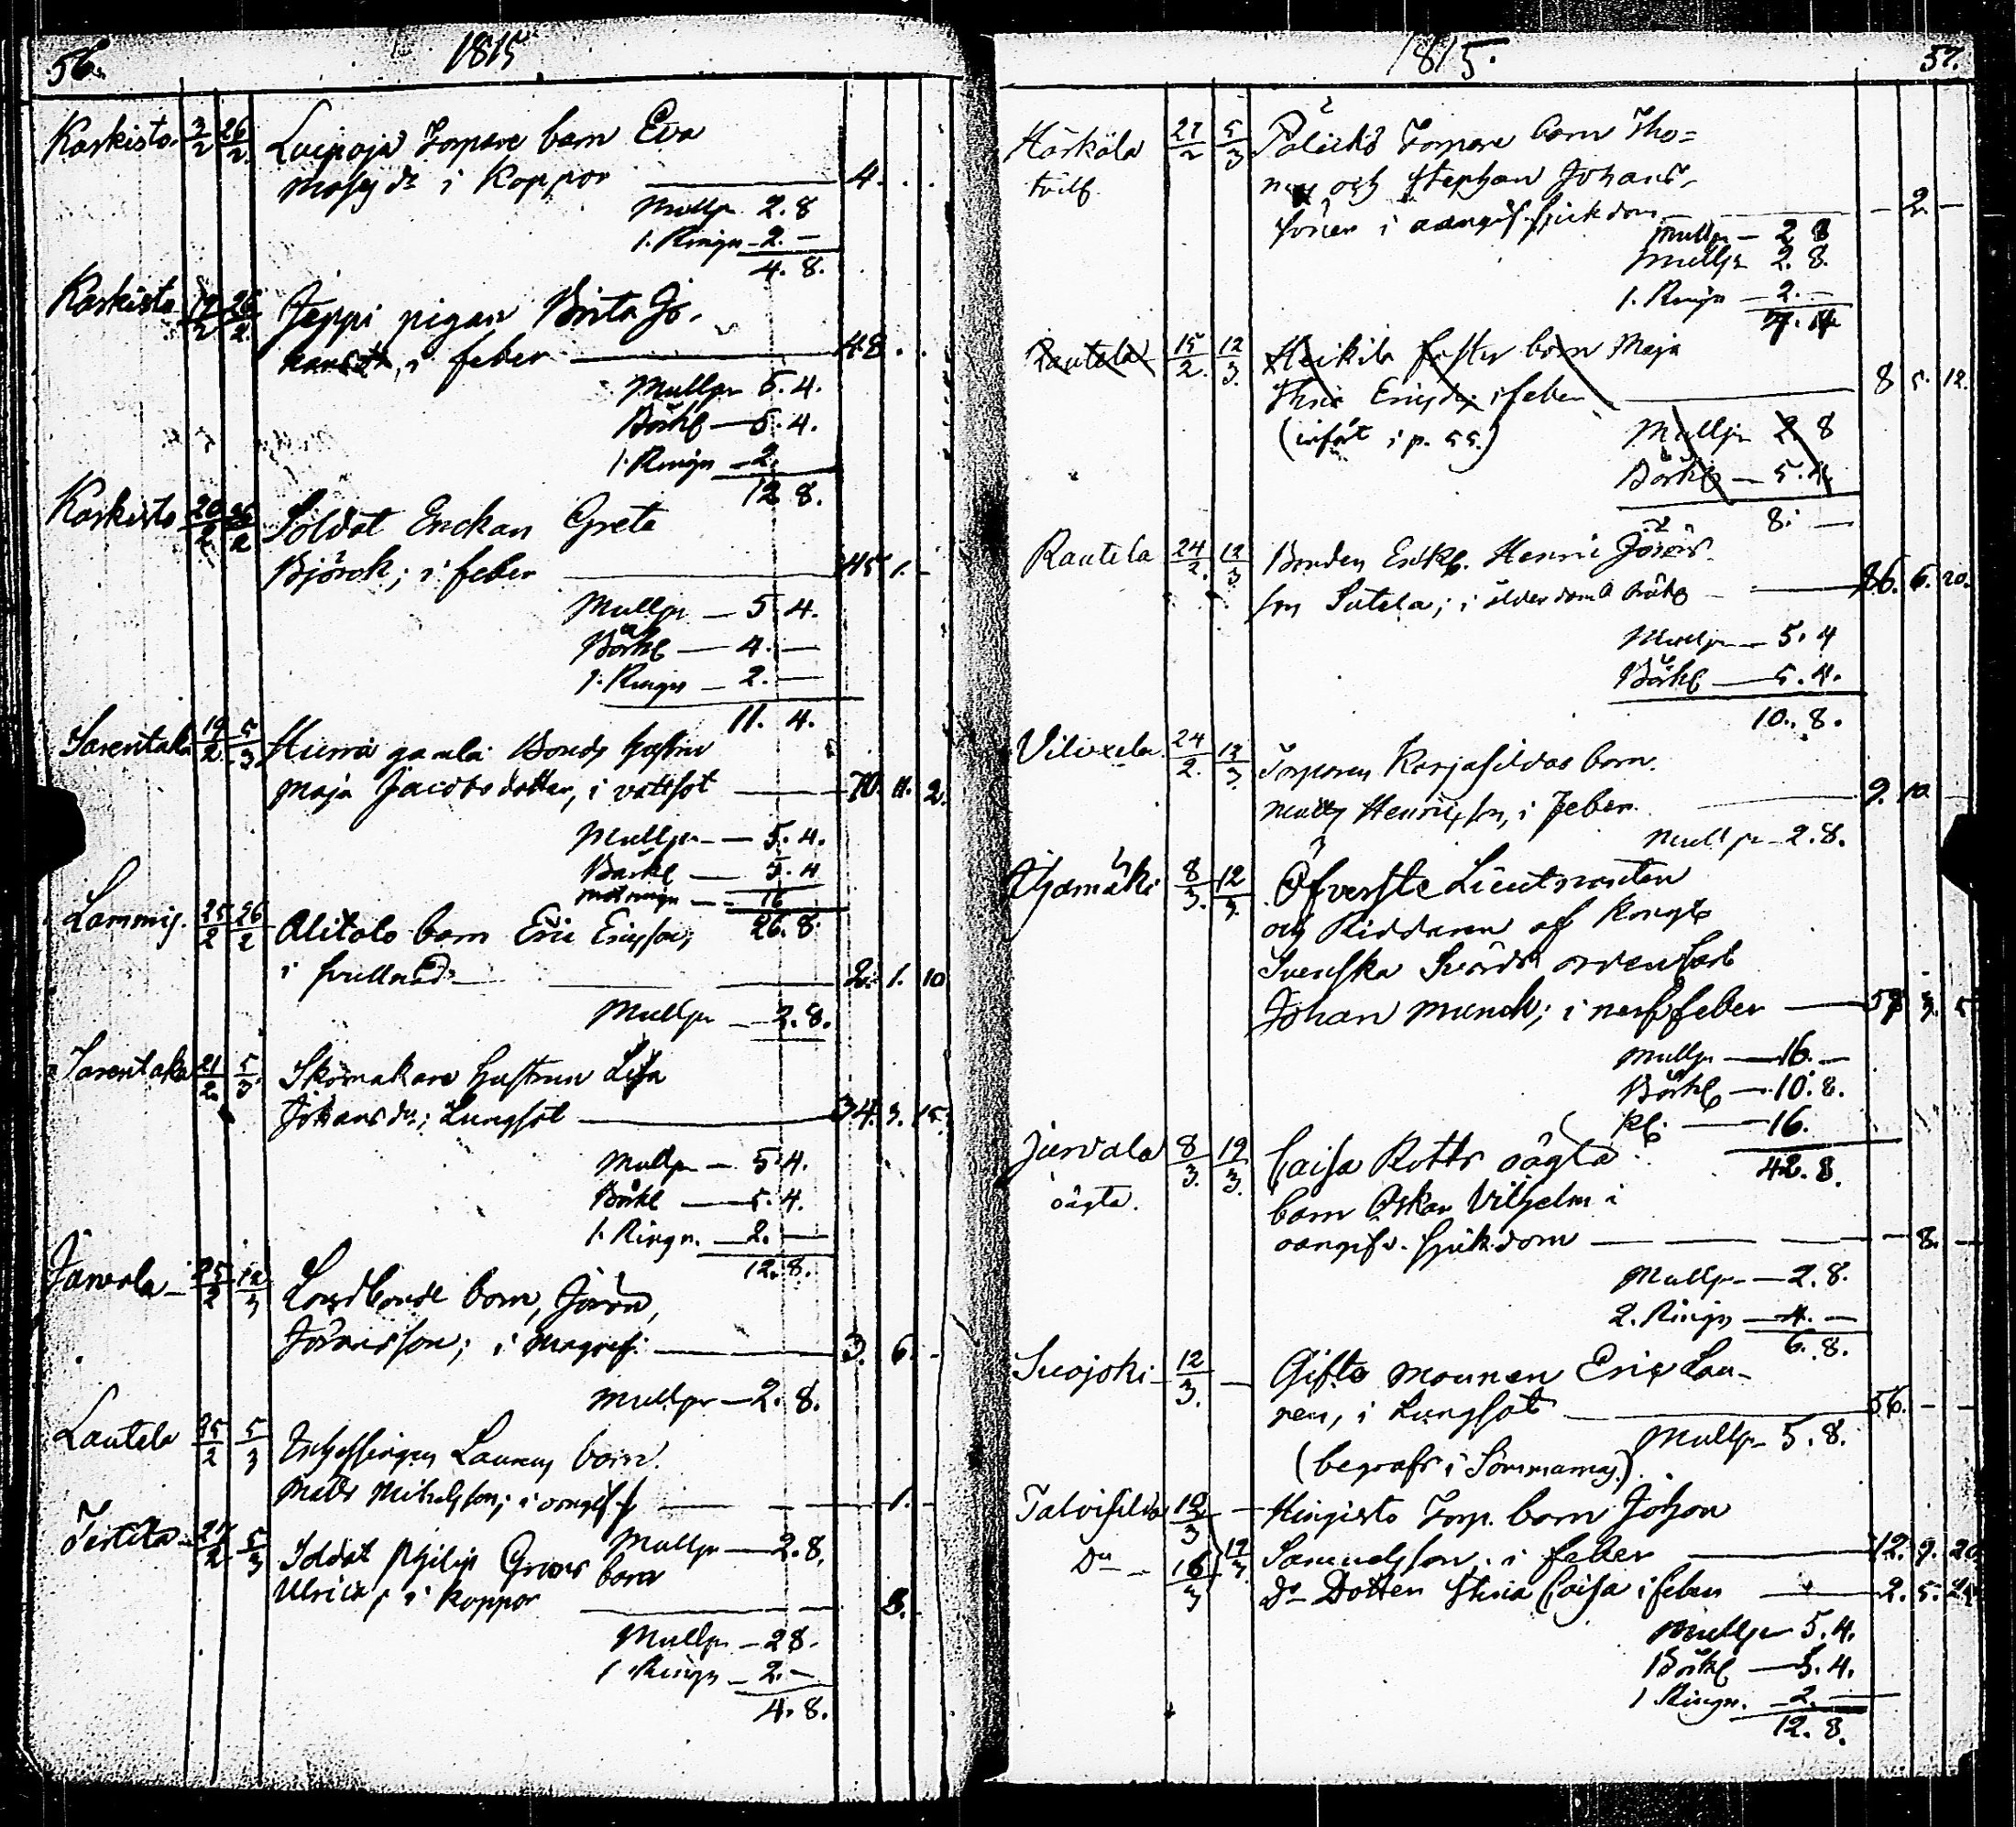 56. 1815
Karkisto. 3/2 26/2. Luipoja Torpare barn Eva
Matsdr i Koppor 4. . .
Mullpr 2. 8
1. Ringn 2. —
4. 8.
Karkisto 19/2 26/2. Jeppi pigan Brita Jo-
hansdr, i feber 48 . .
Mullpr 5. 4.
Bårkl — 5. 4.
1. Ringn — 2.
12 8.
Karkisto 20/2 26/2 Soldat Enckan Greta
Björck; i feber 45 1. -
Mullpr — 5. 4.
Bårkl — 4. —
1. Ringn — 2. —
11. 4.
Sarentaka 19/2. 5/3. gamla Bonds hustru
Maja Jacobsdotter, i vattsot 70. 11. 2.
Mullpr — 5. 4.
Bårkl — 5. 4
16
26. 8.
Lammis. 25/2 26/2 Alitalo barn Eric Ericsson,
i svullnad 2. 1. 10
Mullpr — 2. 8.
Sarentaka 21/2. 5/3. Skomakare hustrun Lisa
Johansdr; Lungsot 34. 3. 15.
Mullpr — 5. 4.
Bårkl — 5. 4.
1. Ringn. — 2. —
12. 8.
Järvola 25/2 12/3 Landbonde barn, Jöran,
Jöransson; i magref: 3. 6. -
Mullpr — 2. 8.
Lautela 25/2 5/3 Inhyssingen Launeus barn.
Matts Michelsson; i oangif. s 1. -
Mullpr — 2. 8.
27/2 5/3 Soldat Philip barn
Ulrica, i Koppor 3.
Mullpr — 2 8.
1 Ringn — 2. —
4. 8.
1815. 57.
Härkälä 27/2 5/3 Torpare barn Tho-
tvill. mas och Stephan Johans-
söner i oangif. sjukdom — 2. —
Mullpr — 2 8
Mullpr 2. 8.
1. Ringn — 2. —
7. 4
Rautela 15/2. 12/3. Heikilä foster barn Maja
Stina Ericsdr. i feber 8 5. 12.
(infört i p. 55.) Mullpr 2. 8
Bårkl — 5. 4.
8. —
Rautela 24/2. 12/3. Bonden Enkl. Henric Jörans-
son Sutela; i ålderdoms bräkl 86. 6. 20.
Mullpr — 5. 4
Bårkl — 5. 4.
10. 8.
24/2. 12/3. Torparen Karjasildas barn.
Matts Henricsson, i feber 9. 10 —
Mullpr — 2. 8.
Ojamäki 8/3. 12/3. Öfverste Lieutnanten
och Riddaren af Kongl.
Svenska Svärds orden Carl
Johan Munck; i nerf feber — 57 3. 5
Mullpr — 16. —
Bårkl — 10. 8.
Kl. — 16.
42. 8.
Järvola 8/3. 19/3. Caisa Rotts oägta
oägta. barn Oskar Vilhelm i
oangifv. sjukdom — 8. —
Mullpr — 2. 8.
2. Ringn — 4. —
6. 8.
Suojoki 12/3. — Gifta mannen Eric Lau-
ren, i Lungsot 56. - -
Mullpr 5. 8.
(begrafs i Sommarnäs).
Talvisilda 12/3 — Hingisto Torp. barn Johan
Samuelsson. i feber 12. 9. 20
Do — 16/3 19/3. Do Dotter Stina Caisa i feber 2. 5. 24
Mullpr 5. 4.
Bårkl — 5. 4.
1 Ringn. — 2. —
12. 8.